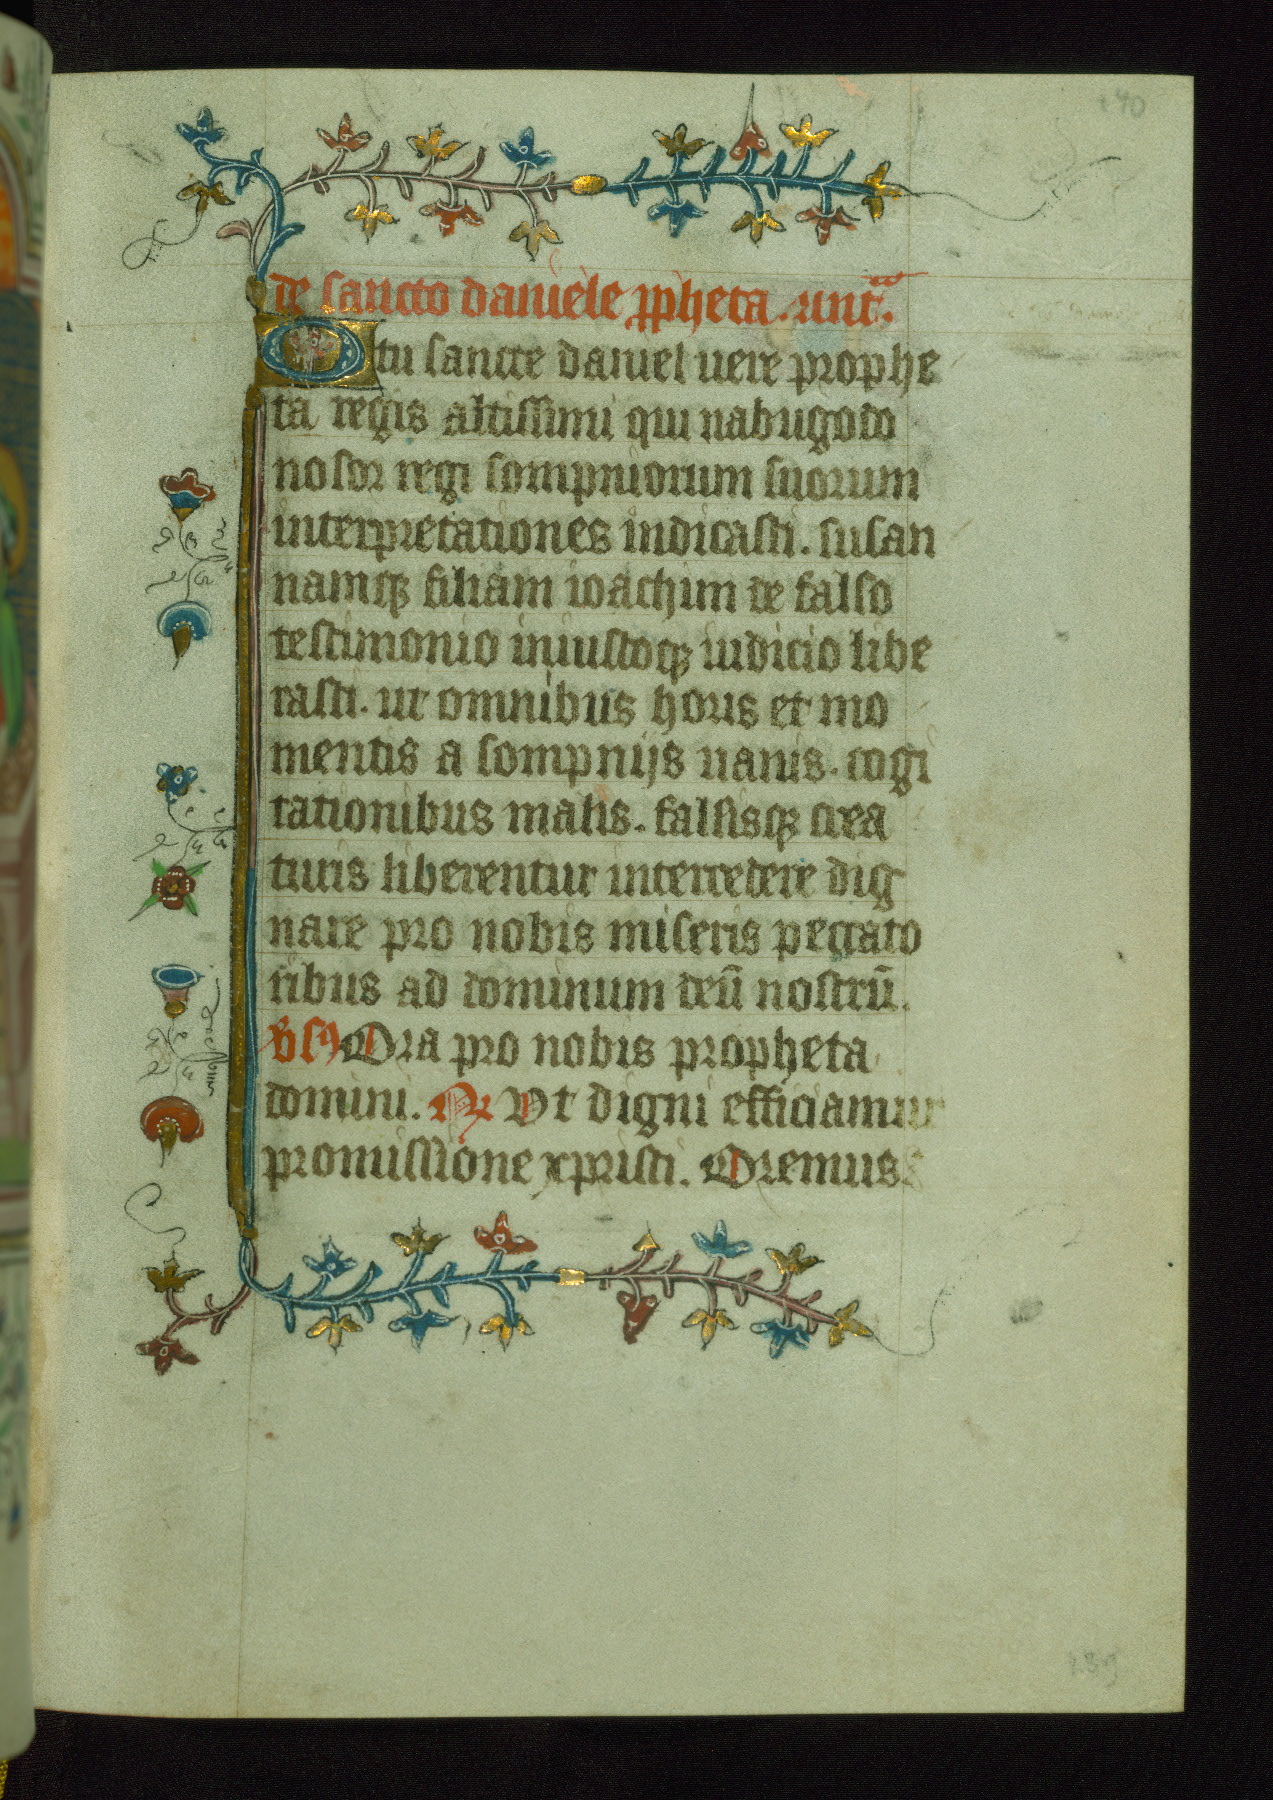 de sancto daniele ꝓpheta. ant̃.
O tu sancte daniel uere prophe
ta regis altissimi qui nabugodo
nosor regi sompniorum suorum
interpretationes indicasti. susan
namqꝫ filiam ioachim de falso
testimonio iniustoqꝫ iudicio libe
rasti. ut omnibus horis et mo
mentis a sompnijs uanis. cogi
tationibus malis. falsisqꝫ crea
turis liberentur intercedere dig
nare pro nobis miseris peccato
ribus ad dominum deū nostrū.
v̓sꝰ Ora pro nobis propheta
domini. ℟ Ut digni efficiamur
promissione xpristi. Oremus